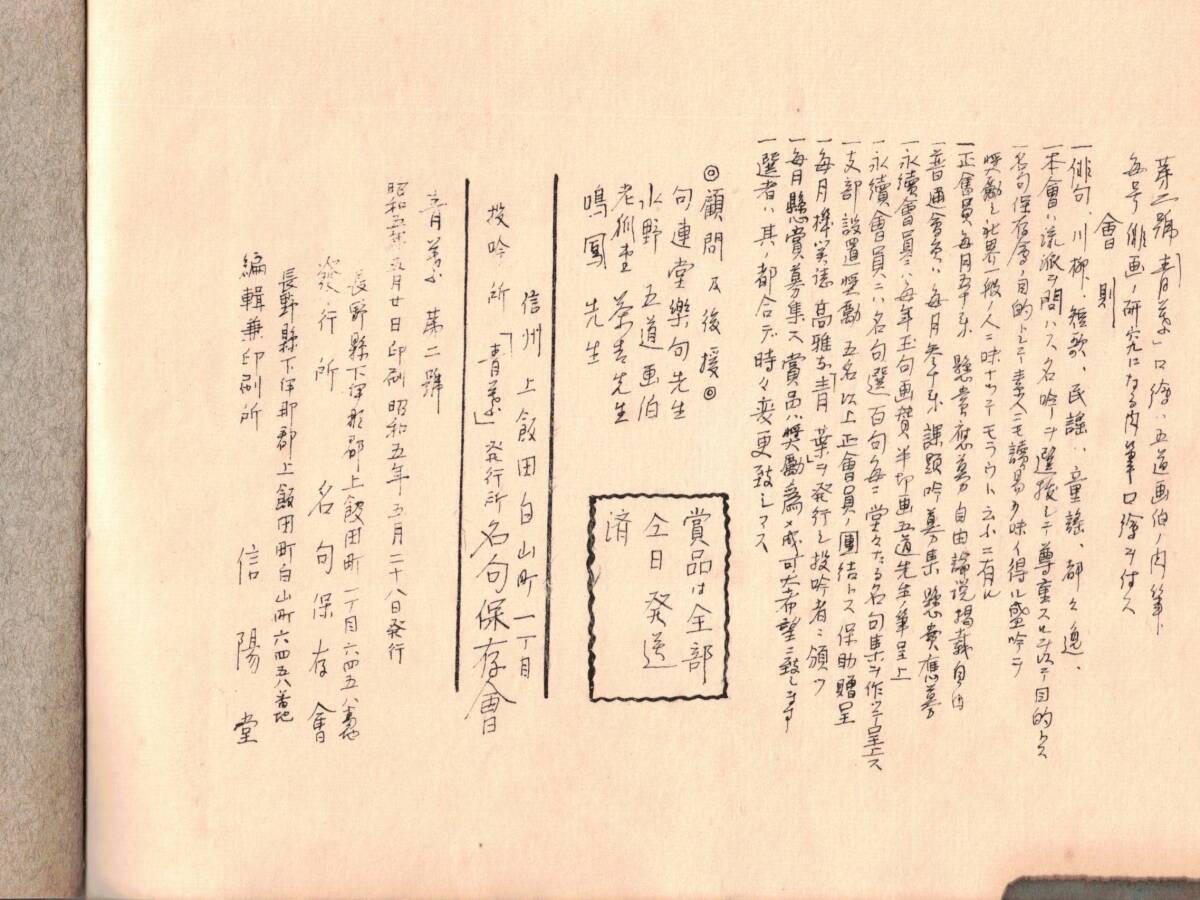 第二號「青葉」口繪ハ五道画伯ノ肉筆
毎号俳画ノ研究になる肉筆口繪ヲ付ス
會則
一俳句、川柳、短歌、民謡、童謡、都々逸、
一本會ハ流派ヲ問ハス名吟ヲ選抜シテ尊重スル以テ目的トス
一名句保存會ノ目的トシテ素人ニモ讀易ク味イ得ル盛吟ヲ
奬勵シ社界一般ノ人ニ味ナッテモラウト云ふニ有ル
一正會員毎月五十戋 懸賞應募 自由論説掲載自由
一普通會員ハ毎月参十戋 課題吟募集 懸賞應募
一永續會員ニハ毎年玉句画賛半切画五道先生ノ筆呈上
一永續會員ニハ名句選百句毎ニ堂々たる名句集ヲ作ツテ呈上ス
一支部設置奬勵 五名以上正會員ノ團結トス 保助贈呈
一毎月機関誌高雅な「青葉」ヲ発行シ投吟者ニ頒ツ
一毎月懸賞募集ス賞品ハ奬勵ノ為メ成可大希望ニ致シマス
一選者ハ其ノ都合デ時々変更致シマス
◎顧問及後援◎
句連堂樂句先生
水野五道画伯
茶吉先生
鳴鳳先生
賞品は全部
仝日発送
済
信州上飯田白山町一丁目
投吟所「青葉」発行所名句保存會
青葉 第二號
昭和五年五月廿日印刷 昭和五年五月二十八日発行
長野縣下伊那郡上飯田町一丁目六四五八番地
發行所 名句保存會
長野縣下伊那郡上飯田町白山町六四五八番地
編輯兼印刷所 信陽堂